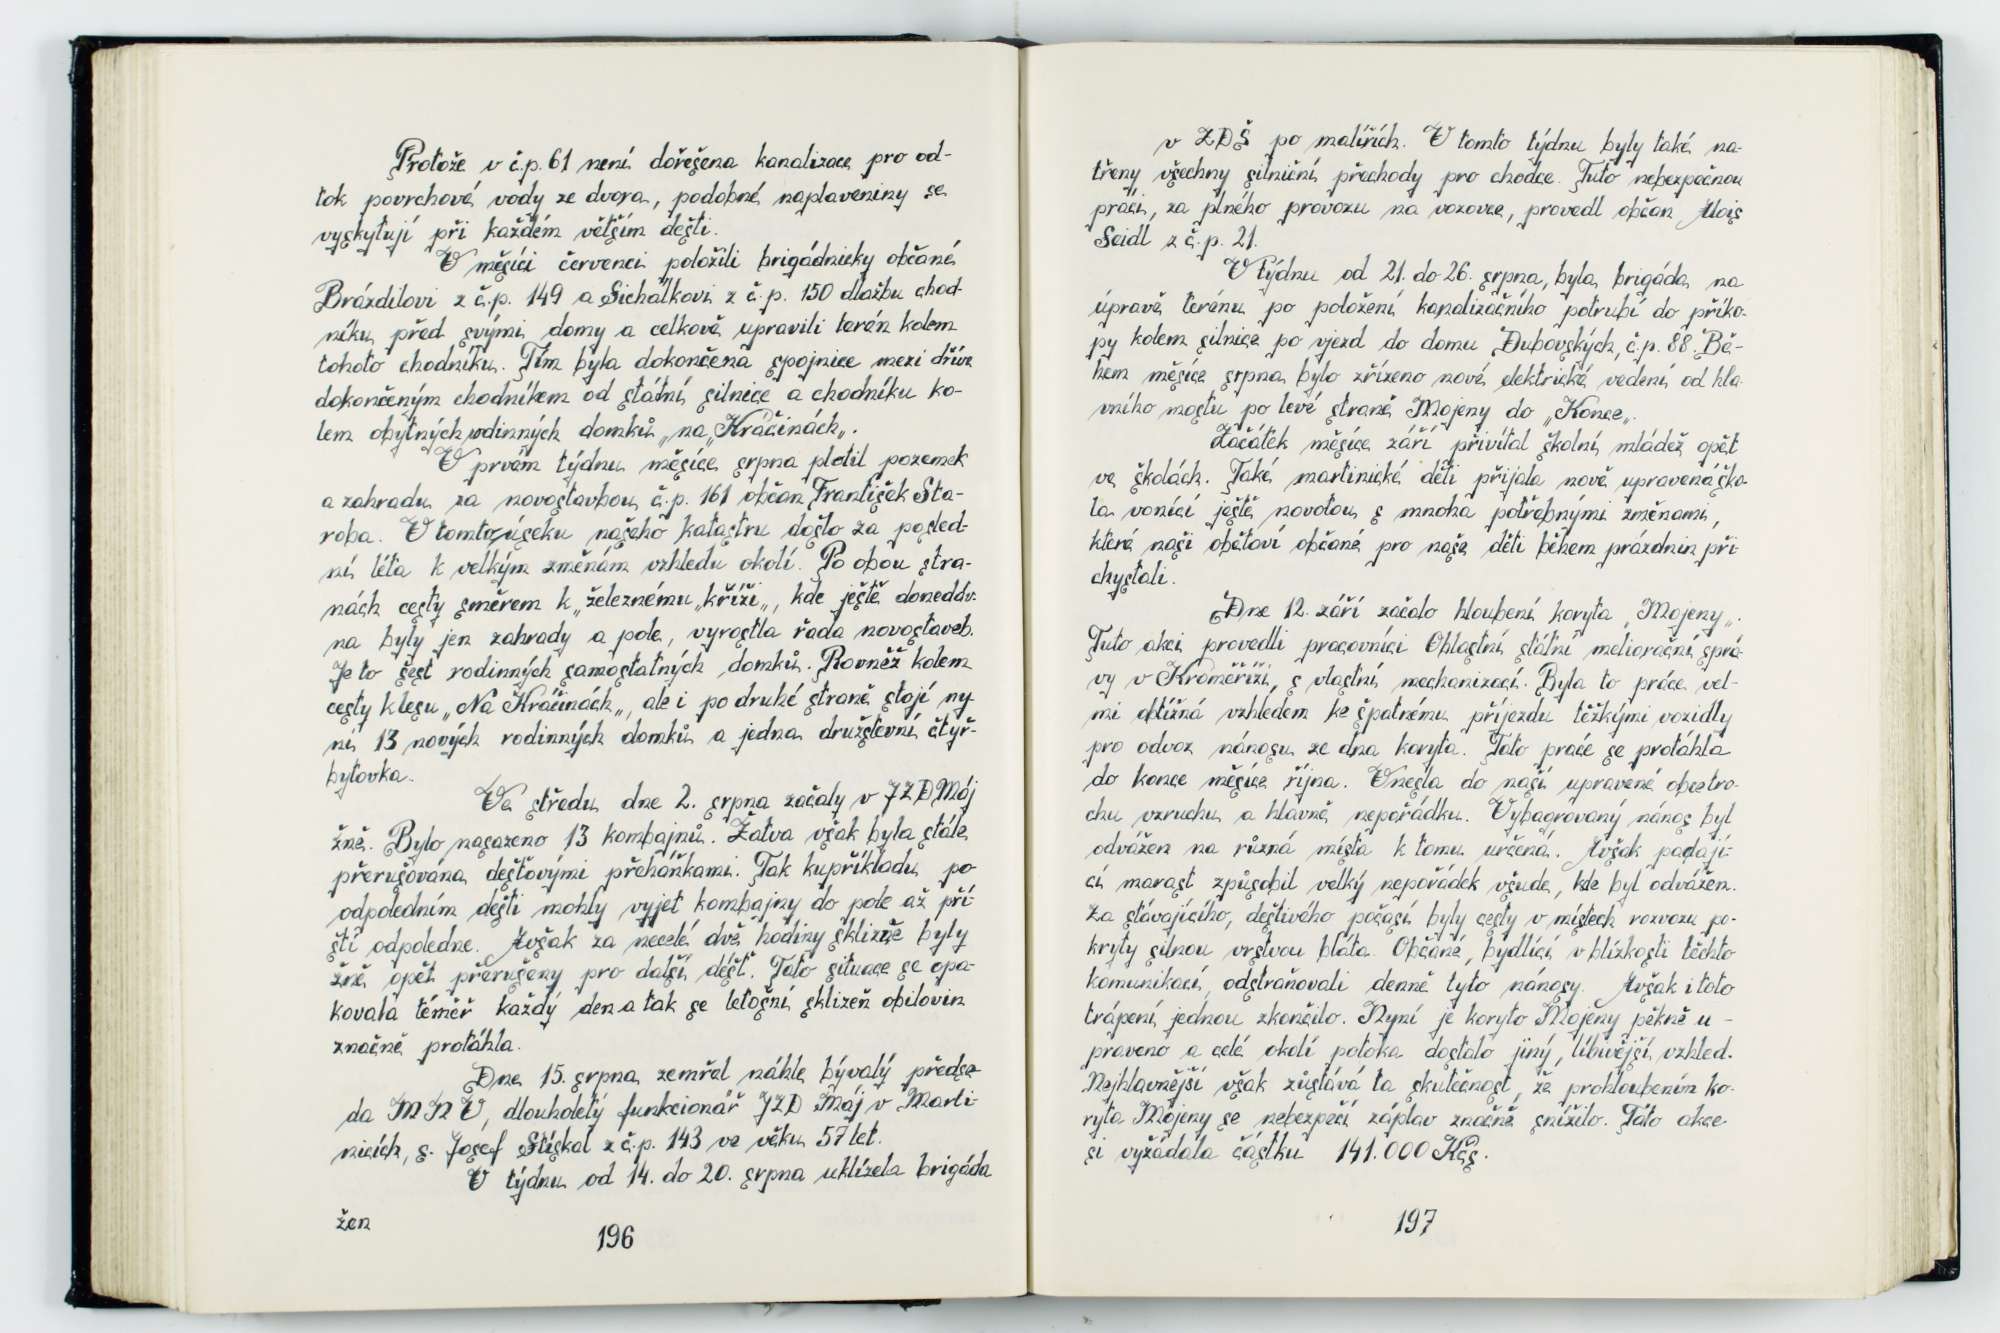 Protože v č.p. 61 není dořešena kanalizace pro od-
tok povrchové vody ze dvora, podobné naplaveniny se
vyskytují při každém větším dešti.
V měsíci červenci položili brigádnicky občané
Brázdilovi z č.p. 149 a Sichálkovi z č.p. 150 dlažbu chod-
níku před svými domy a celkově upravili terén kolem
tohoto chodníku. Tím byla dokončena spojnice mezi dříve
dokončeným chodníkem od státní silnice a chodníku ko-
lem obytných rodinných domků „na „Kráčinách„.
V prvém týdnu měsíce srpna plotil pozemek
a zahradu za novostavbou č.p. 161 občan František Sta-
roba. V tomto úseku našeho katastru došlo za posled-
ní léta k velkým změnám vzhledu okolí. Po obou stra-
nách cesty směrem k „železnému „kříži„, kde ještě doneddv-
na byly jen zahrady a pole, vyrostla řada novostaveb.
Je to šest rodinných samostatných domků. Rovněž kolem
cesty k lesu „Na Kráčinách„, ale i po druhé straně stojí ny-
ní 13 nových rodinných domků a jedna družstevní čtyř-
bytovka.
Ve středu dne 2. srpna začaly v JZD Máj
žně. Bylo nasazeno 13 kombajnů. Žatva však byla stále
přerušována dešťovými přeháňkami. Tak kupříkladu po
odpoledním dešti mohly vyjet kombajny do pole až pří-
ští odpoledne. Avšak za necelé dvě hodiny sklizně byly
žně opět přerušeny pro další déšť. Tato situace se opa-
kovala téměř každý den a tak se letošní sklizeň obilovin
značně protáhla.
Dne 15. srpna zemřel náhle bývalý předse-
da MNV, dlouholetý funkcionář JZD Máj v Marti-
nicích, s. Josef Stískal z č.p. 143 ve věku 57 let.
V týdnu od 14. do 20. srpna uklízela brigáda
žen
196
v ZDŠ po malířích. V tomto týdnu byly také na-
třeny všechny silniční přechody pro chodce. Tuto nebezpečnou
práci, za plného provozu na vozovce, provedl občan Alois
Seidl z č.p. 21.
V týdnu od 21. do 26. srpna, byla brigáda na
úpravě terénu po položení kanalizačního potrubí do příko-
py kolem silnice po vjezd do domu Dubovských, č.p. 88. Bě-
hem měsíce srpna bylo zřízeno nové elektrické vedení od hla-
vního mostu po levé straně Mojeny do „Konce„.
Začátek měsíce září přivítal školní mládež opět
ve školách. Také martinické děti přijala nově upravená ško-
la vonící ještě novotou s mnoha potřebnými změnami,
které naši obětaví občané pro naše děti během prázdnin při-
chystali.
Dne 12. září začalo hloubení koryta „Mojeny„.
Tuto akci provedli pracovníci Oblastní státní meliorační sprá-
vy v Kroměříži, s vlastní mechanizací. Byla to práce vel-
mi obtížná vzhledem ke špatnému příjezdu těžkými vozidly
pro odvoz nánosu ze dna koryta. Tato práce se protáhla
do konce měsíce října. Vnesla do naší upravené obce tro-
chu vzruchu a hlavně nepořádku. Vybagrovaný nános byl
odvážen na různá místa k tomu určená. Avšak padají-
cí marast způsobil velký nepořádek všude, kde byl odvážen.
Za stávajícího, deštivého počasí byly cesty v místech rozvozu po-
kryty silnou vrstvou bláta. Občané, bydlící v blízkosti těchto
komunikací, odstraňovali denně tyto nánosy. Avšak i toto
trápení jednou zkončilo. Nyní je koryto Mojeny pěkně u-
praveno a celé okolí potoka dostalo jiný, líbivější vzhled.
Nejhlavnější však zůstává ta skutečnost, že prohloubením ko-
ryta Mojeny se nebezpečí záplav značně snížilo. Tato akce
si vyžádala částku 141.000 Kčs.
197